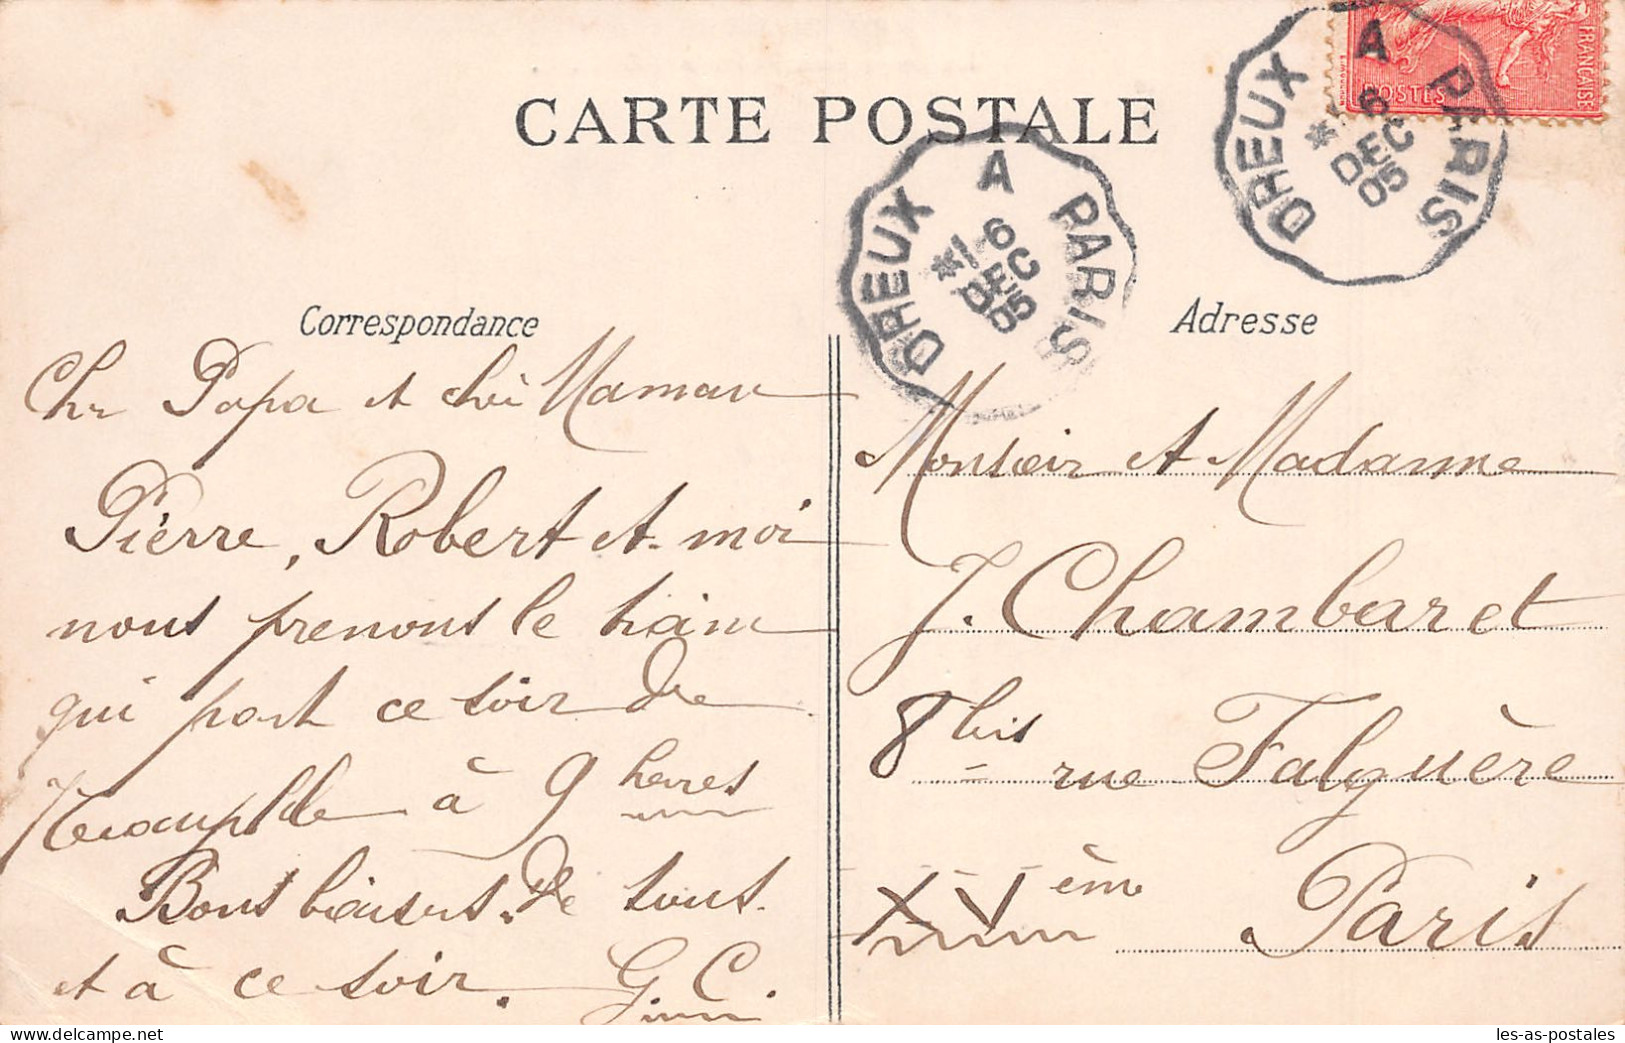 CARTE POSTALE
FRANÇAISE
POSTES
DREUX A PARIS
*1 6
DEC
05
DREUX A PARIS
*1 6
DEC
05
Correspondance
Chr Papa et chèr Maman
Pierre, Robert et moi
nous prenons le train
qui part ce soir de
à 9 heures
Bons baisers de tous
et à ce soir. G. C.
Adresse
Monsieir et Madame
J. Chambaret
8 bis rue Falguère
XV ème Paris
les-as-postales
www.delcampe.net